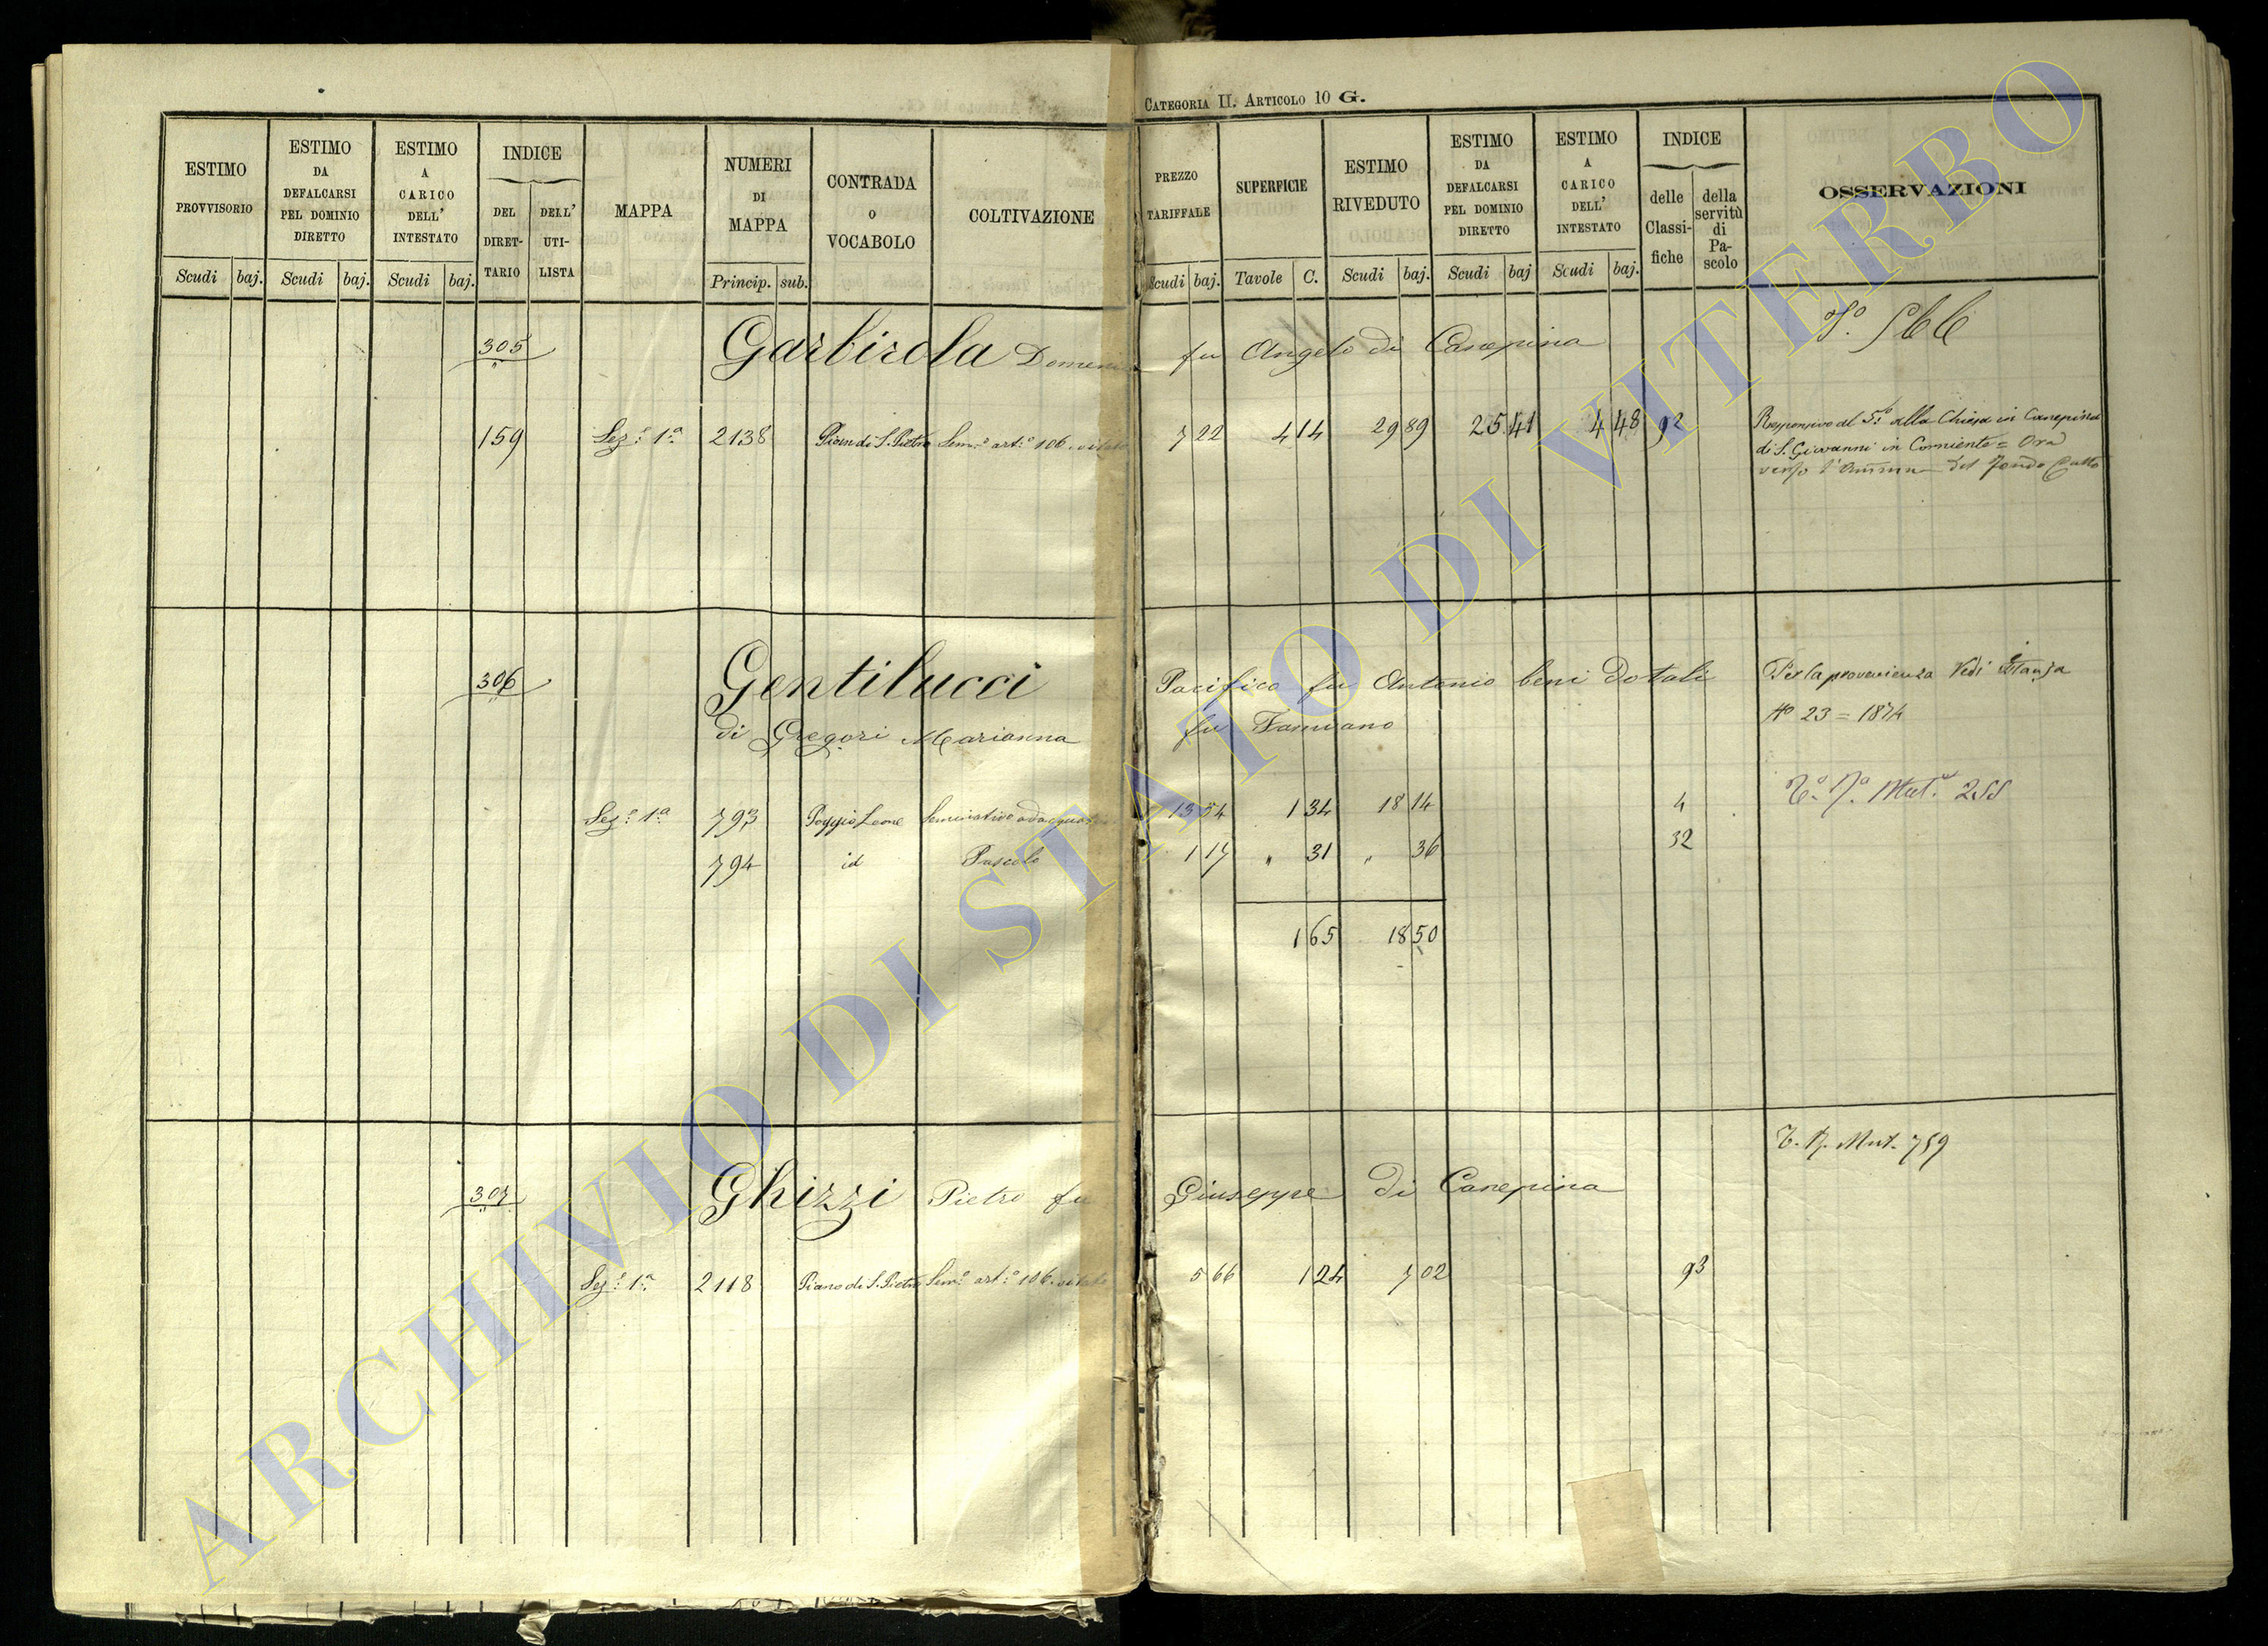 CATEGORIA II. ARTICOLO 10 G.
ESTIMO PROVVISORIO
Scudi baj.
ESTIMO DA DEFALCARSI PEL DOMINIO DIRETTO
Scudi baj.
ESTIMO A CARICO DELL' INTESTATO
Scudi baj.
INDICE
DEL DIRET-TARIO
DELL' UTI-LISTA
MAPPA
NUMERI DI MAPPA
Princip. sub.
CONTRADA O VOCABOLO
COLTIVAZIONE
PREZZO TARIFFALE
Scudi baj.
SUPERFICIE
Tavole C.
ESTIMO RIVEDUTO
Scudi baj.
ESTIMO DA DEFALCARSI PEL DOMINIO DIRETTO
Scudi baj
ESTIMO A CARICO DELL' INTESTATO
Scudi baj.
INDICE
delle Classi-fiche
della servitù di Pa-scolo
OSSERVAZIONI
305 Garbirola Domeni fu Angelo di Canepina
159 Sez.e 1.a 2138 Piano di S. Pietro Sem.o art.o 106. vitato 7 22 4 14 29 89 25 41 4 48 92
Responsivo al 5.o alla Chiesa in Canepina
di S. Giovanni in Comiente = Ora
verso l' Amm.ne del Fondo Culto
306 Gentilucci Pacifico fu Antonio beni Dotali
di Gregori Marianna fu Famiano
Per la provenienza Vedi Istanza
N.o 23 = 1874
Sez.e 1.a 793 Poggio Leone Seminativo adacquativo 13 54 1 34 18 14 4
T.o N.o Mut.e 255
794 id Pascolo 1 17 " 31 " 36 32
1 65 18 50
T. N. Mut. 759
307 Ghizzi Pietro fu Giuseppe di Canepina
Sez.e 1.a 2118 Piano di S. Pietro Sem.o art.o 106. vitato 5 66 1 24 7 02 93
ARCHIVIO DI STATO DI VITERBO